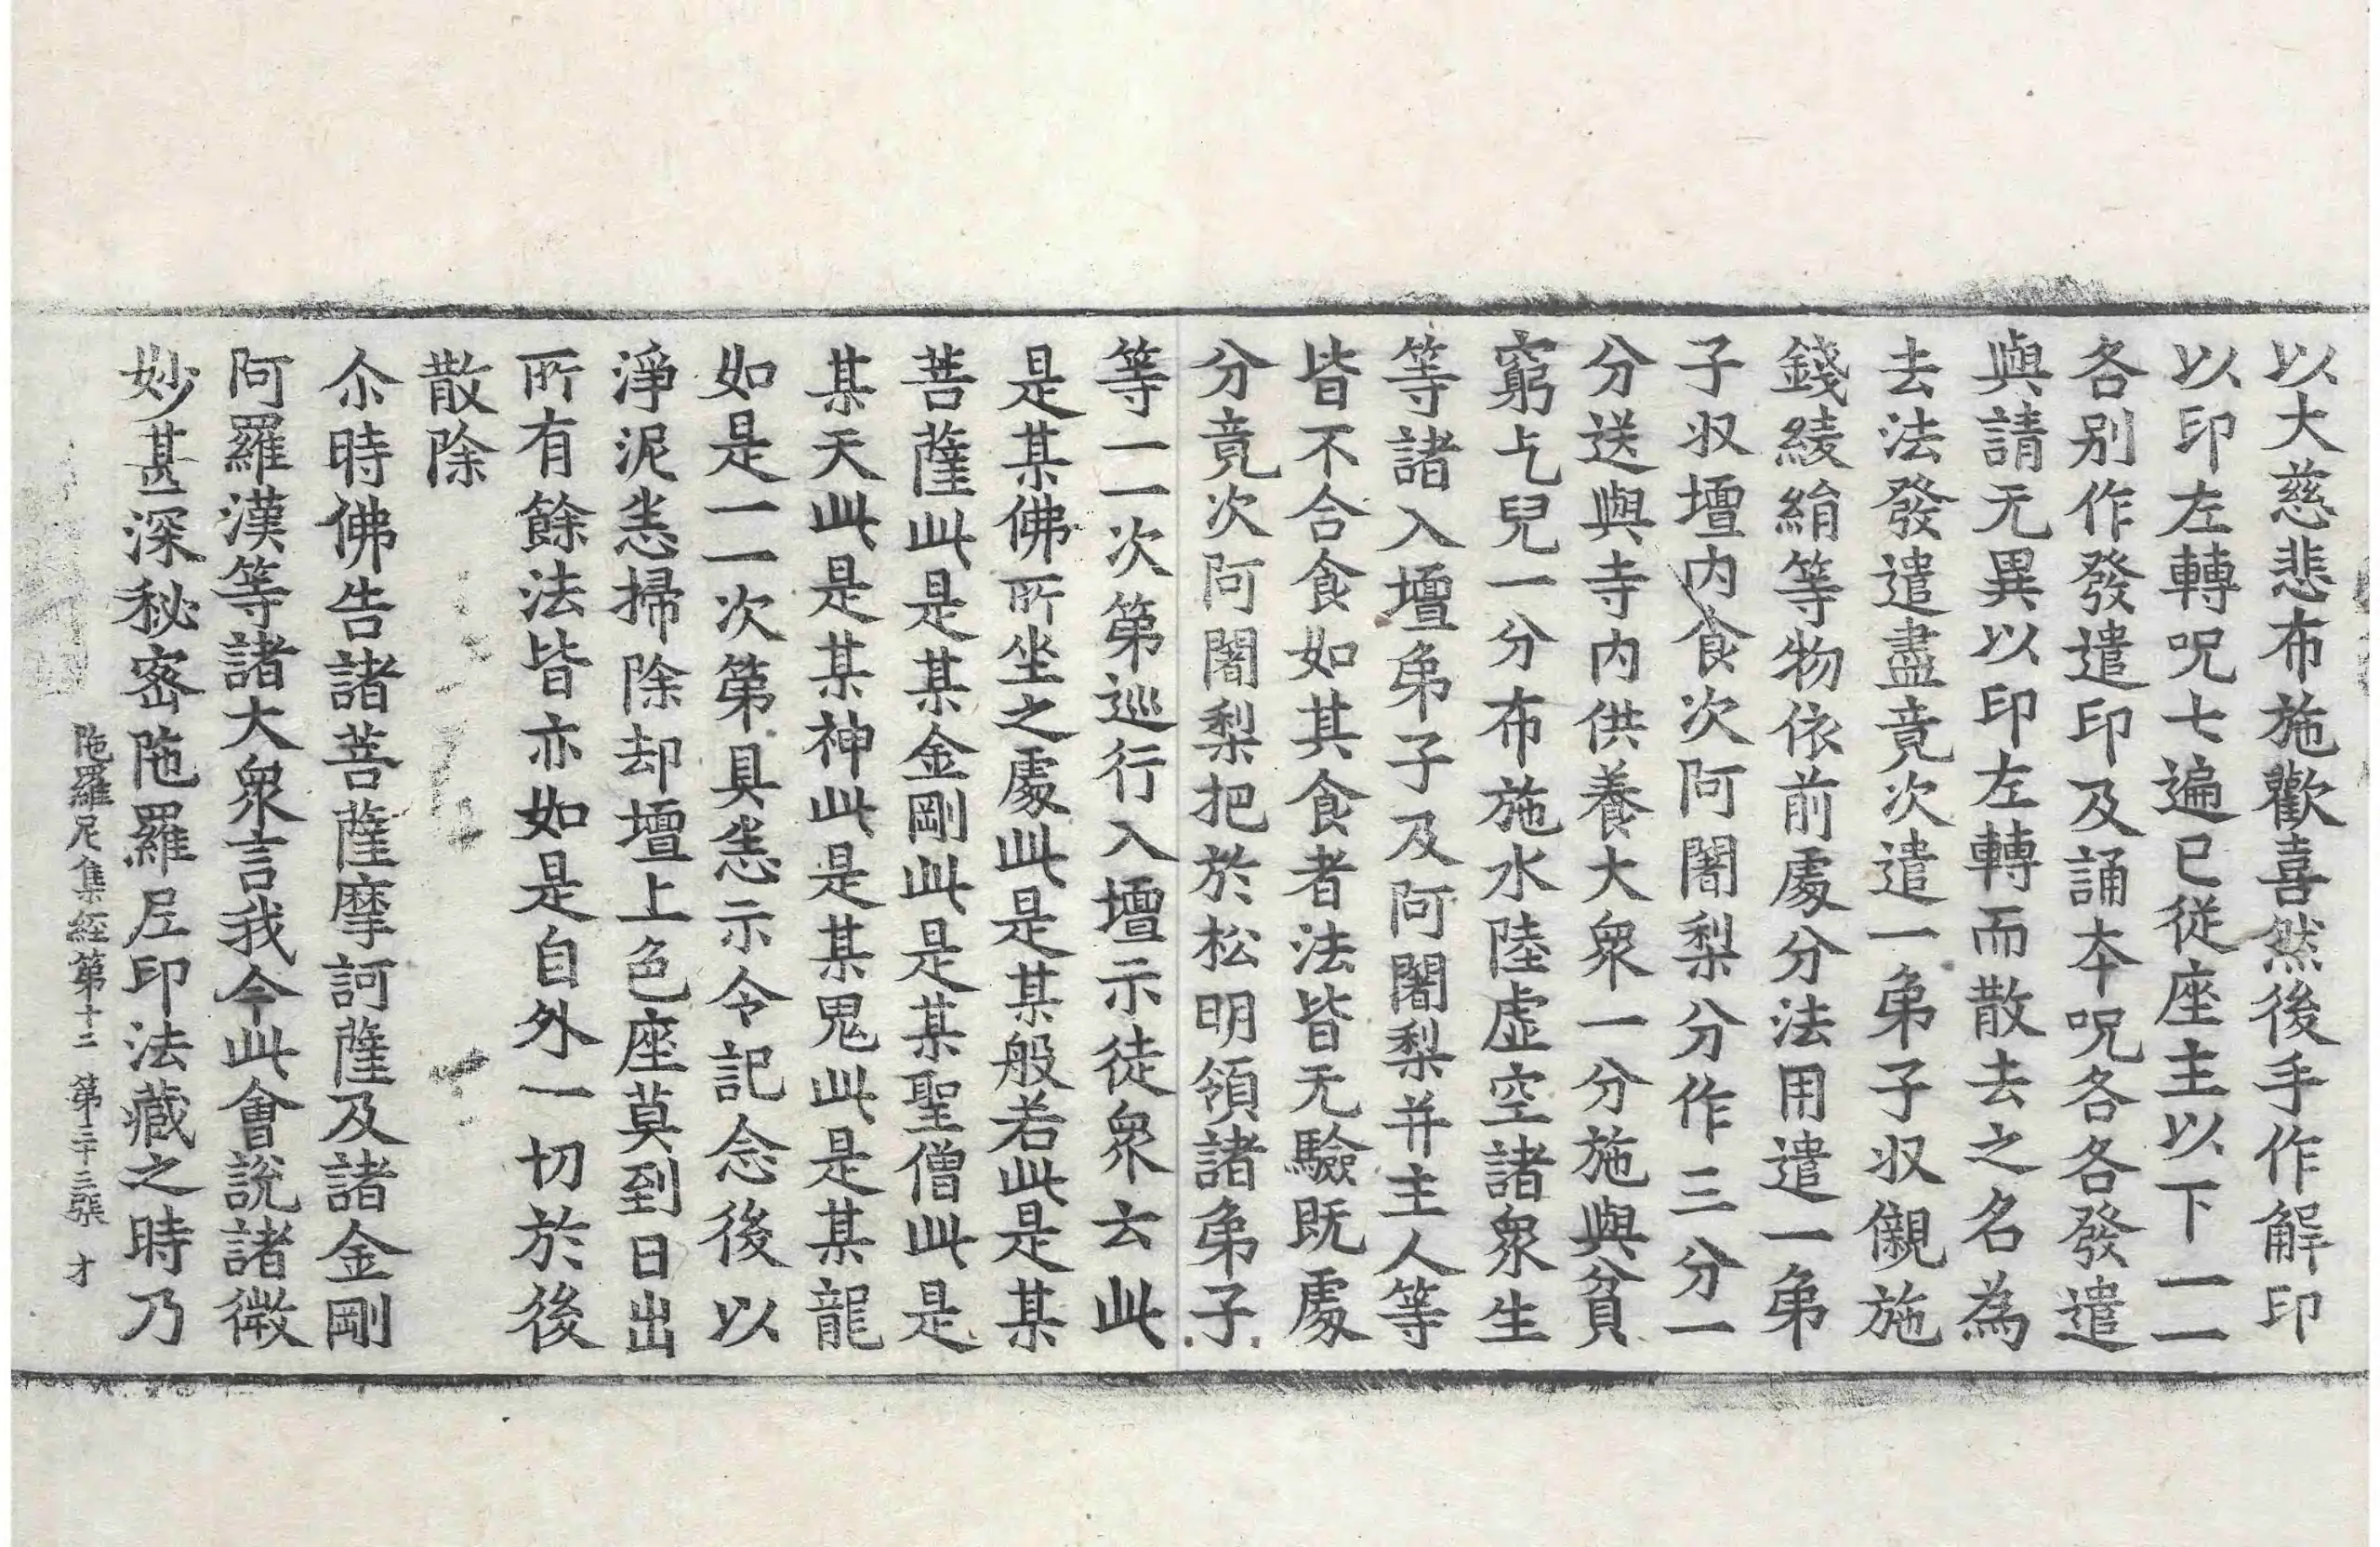 以大慈悲布施歡喜然後手作解印
以印左轉呪七遍已從座主以下一一
各别作發遣印及誦夲呪各各發遣
與請无異以印左轉而散去之名為
去法發遣盡竟次遣一弟子収儭施
錢綾絹等物依前處分法用遣一弟
子収壇内食次阿闍梨分作三分一
分送與寺内供養大衆一分施與貧
窮乞兒一分布施水陸虛空諸衆生
等諸入壇弟子及阿闍梨并主人等
皆不合食如其食者法皆无驗既處
分竟次阿闍梨把於松明領諸弟子
等一一次第巡行入壇示徒衆云此
是某佛所坐之處此是某般若此是某
菩薩此是某金剛此是某聖僧此是
某天此是某神此是某鬼此是某龍
如是一一次第具悉示令記念後以
淨泥悉掃除却壇上色座莫到日出
所有餘法皆亦如是自外一切於後
散除
尒時佛告諸菩薩摩訶薩及諸金剛
阿羅漢等諸大衆言我今此會說諸微
妙甚深秘密陁羅尼印法藏之時乃
陁羅尼集經第十二 第二十三張 才